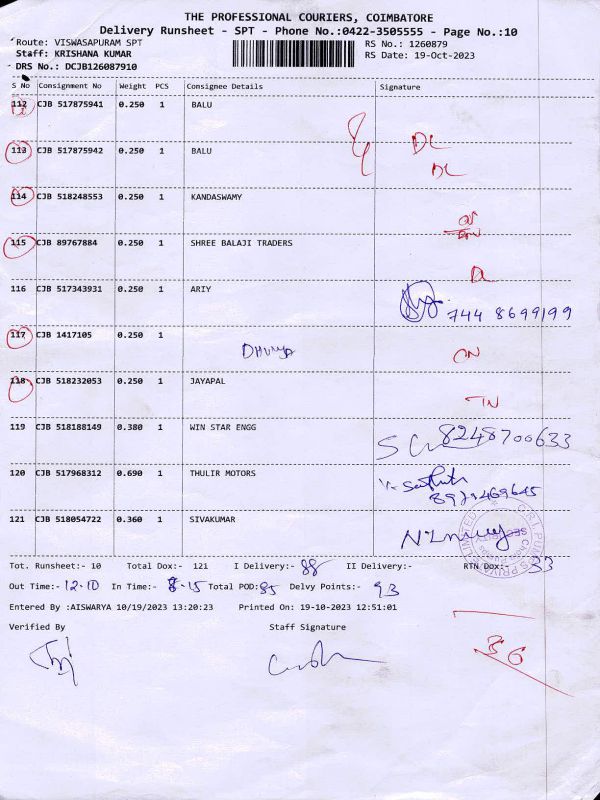 THE PROFESSIONAL COURIERS, COIMBATORE
Delivery Runsheet - SPT - Phone No.:0422-3505555 - Page No.:10
Route: VISWASAPURAM SPT RS No.: 1260879
Staff: KRISHANA KUMAR RS Date: 19-Oct-2023
DRS No.: DCJB126087910
S No Consignment No Weight PCS Consignee Details Signature
112 CJB 517875941 0.250 1 BALU DL
113 CJB 517875942 0.250 1 BALU DL
114 CJB 518248553 0.250 1 KANDASWAMY
115 CJB 89767884 0.250 1 SHREE BALAJI TRADERS DL
116 CJB 517343931 0.250 1 ARIY 744 8699199
117 CJB 1417105 0.250 1 DHUVYA ON
118 CJB 518232053 0.250 1 JAYAPAL IN
119 CJB 518188149 0.380 1 WIN STAR ENGG 8248700633
120 CJB 517968312 0.690 1 THULIR MOTORS
121 CJB 518054722 0.360 1 SIVAKUMAR
Tot. Runsheet:- 10 Total Dox:- 121 I Delivery:- 88 II Delivery:- RTN Dox:- 33
Out Time:- 12-10 In Time:- 8-15 Total POD: 85 Delvy Points:- 93
Entered By :AISWARYA 10/19/2023 13:20:23 Printed On: 19-10-2023 12:51:01
Verified By Staff Signature
36